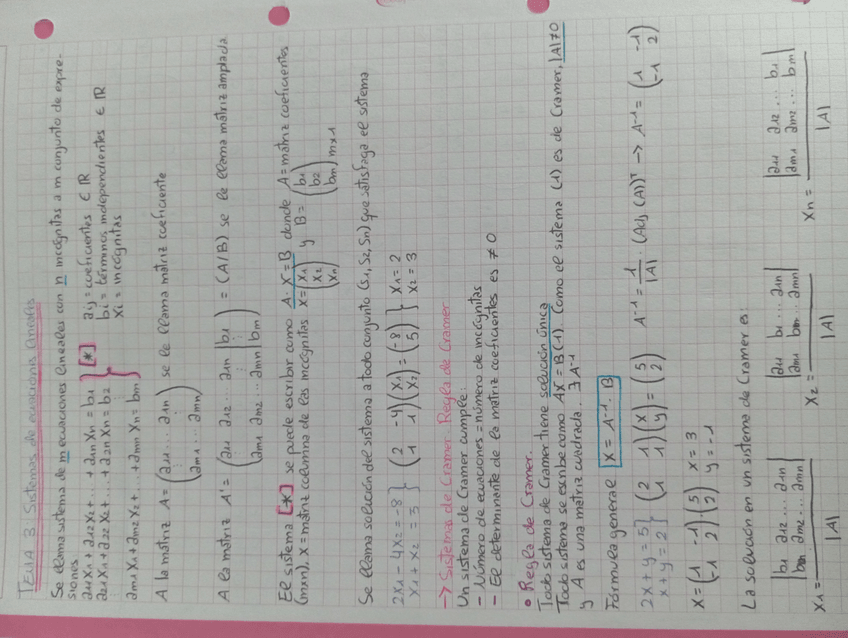 TEMA 3. Sistemas de ecuaciones lineales
Se llama sistema de m ecuaciones lineales con n incógnitas a m conjunto de expre-
siones
a11 X1 + a12 X2 + ... + a1n Xn = b1 } [*] aij = coeficientes ∈ ℝ
a21 X1 + a22 X2 + ... + a2n Xn = b2 bi = términos independientes ∈ ℝ
am1 X1 + am2 X2 + ... + amn Xn = bm xi = incógnitas
A la matriz A = (a11 ... a1n ⋮ am1 ... amn) se le llama matriz coeficiente
A la matriz A' = (a11 a12 a1n | b1 ⋮ am1 am2 ... amn | bm) = (A/B) se le llama matriz ampliada
El sistema [*] se puede escribir como A · X = B donde A = matriz coeficientes
(mxn), X = matriz columna de las incógnitas X = (X1 X2 Xn) y B = (b1 b2 bm) mx1
Se llama solución del sistema a todo conjunto (S1, S2, Sn) que satisfaga el sistema
2X1 - 4X2 = -8 } (2 -4) (X1) = (-8) } X1 = 2
X1 + X2 = 3 } (1 1) (X2) = (5) } X2 = 3
→ Sistemas de Cramer. Regla de Cramer
Un sistema de Cramer cumple:
- Número de ecuaciones = número de incógnitas
- El determinante de la matriz coeficientes es ≠ 0
• Regla de Cramer.
Todo sistema de Cramer tiene solución única
Todo sistema se escribe como AX = B (1). Como el sistema (1) es de Cramer, |A| ≠ 0
y A es una matriz cuadrada. ∃ A⁻¹
Fórmula general X = A⁻¹ · B
2X + y = 5 } (2 1) (X) = (5) A⁻¹ = 1/|A| · (Adj (A))ᵀ → A⁻¹ = (1 -1)
X + y = 2 } (1 1) (y) = (2) (-1 2)
X = (1 -1) · (5) X = 3
(-1 2) (2) y = -1
La solución en un sistema de Cramer es:
X1 = |b1 a12 ... a1n bm am2 ... amn| / |A| X2 = |a11 b1 ... a1n am1 bm ... amn| / |A| Xn = |a11 a12 ... b1 am1 am2 ... bm| / |A|